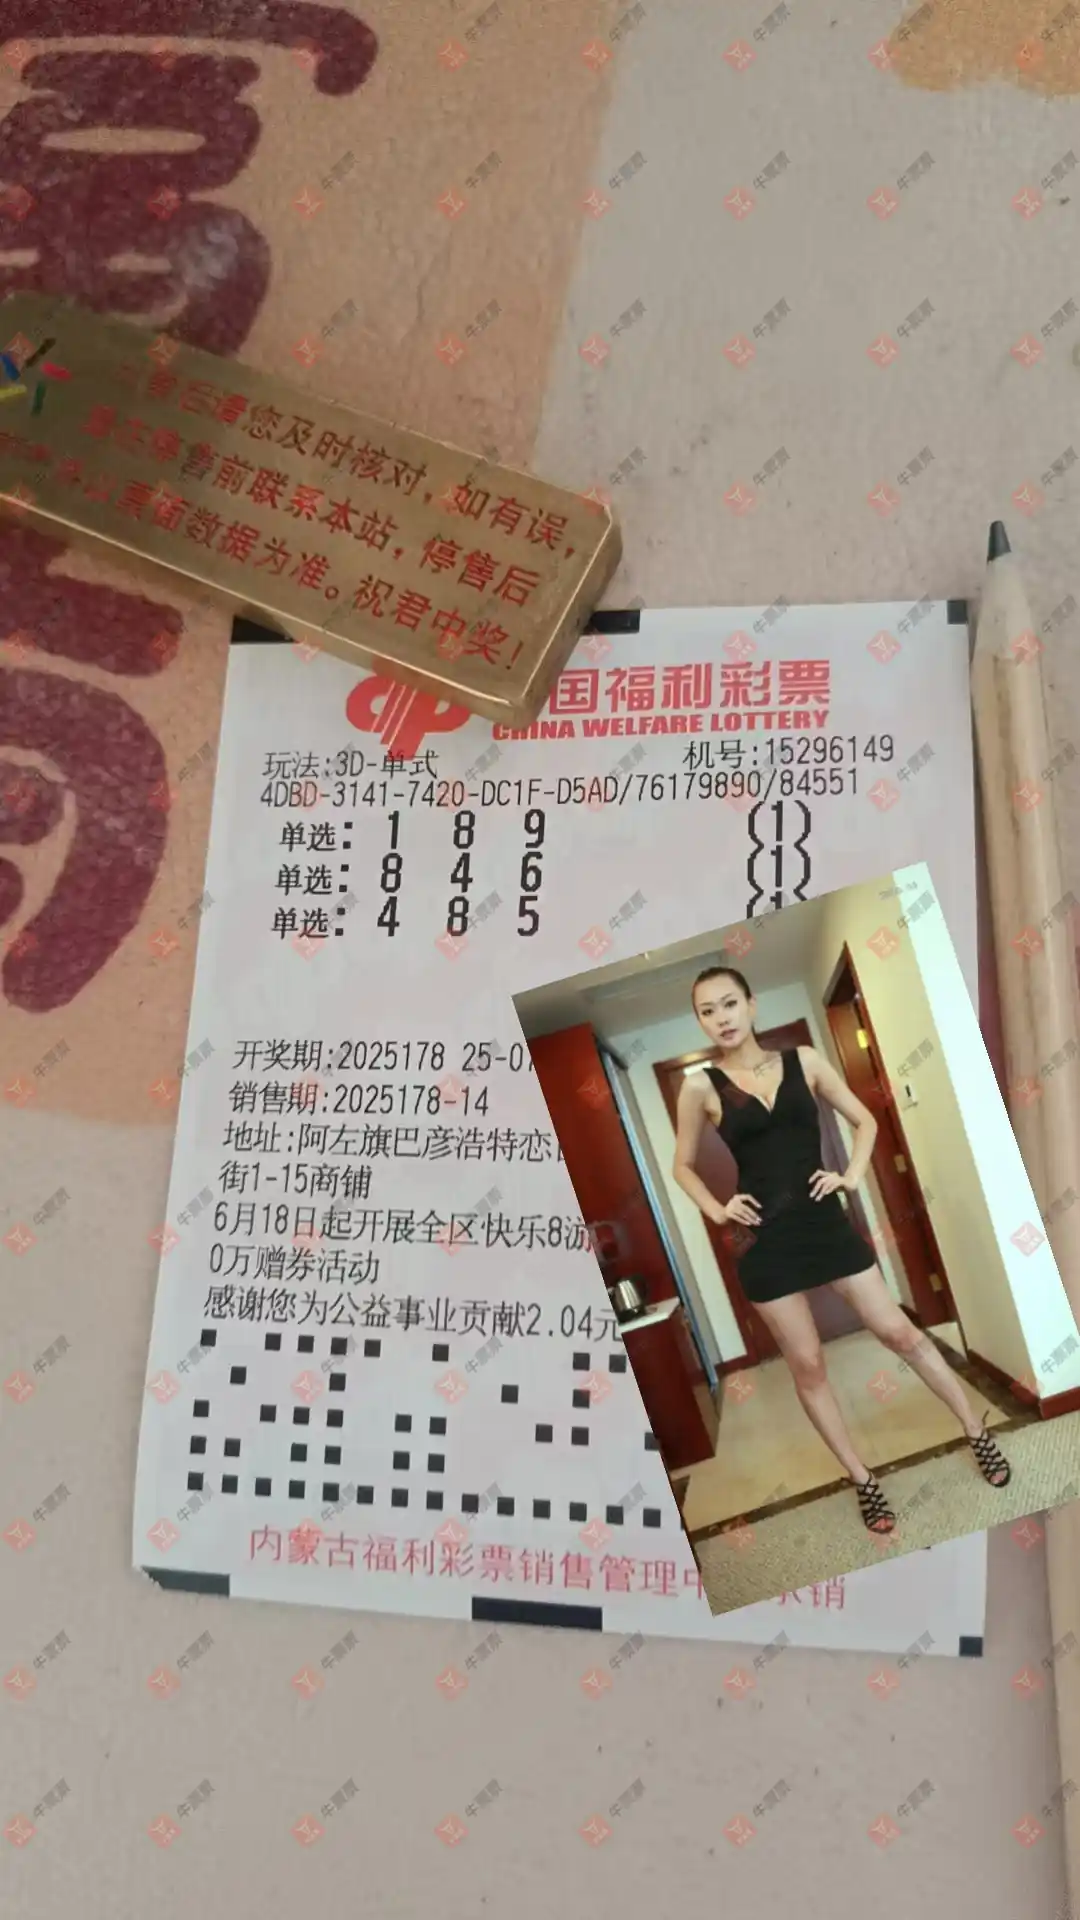 您及时核对，如有误，
售前联系本站，停售后
页面数据为准。祝君中奖！
国福利彩票
CHINA WELFARE LOTTERY
玩法:3D-单式 机号:15296149
4DBD-3141-7420-DC1F-D5AD/76179890/84551
单选: 1 8 9 (1)
单选: 8 4 6 (1)
单选: 4 8 5 (1)
开奖期:2025178 25-07
销售期:2025178-14
地址:阿左旗巴彦浩特恋
街1-15商铺
6月18日起开展全区快乐8游
0万赠券活动
感谢您为公益事业贡献2.04元
内蒙古福利彩票销售管理中 承销
牛票票